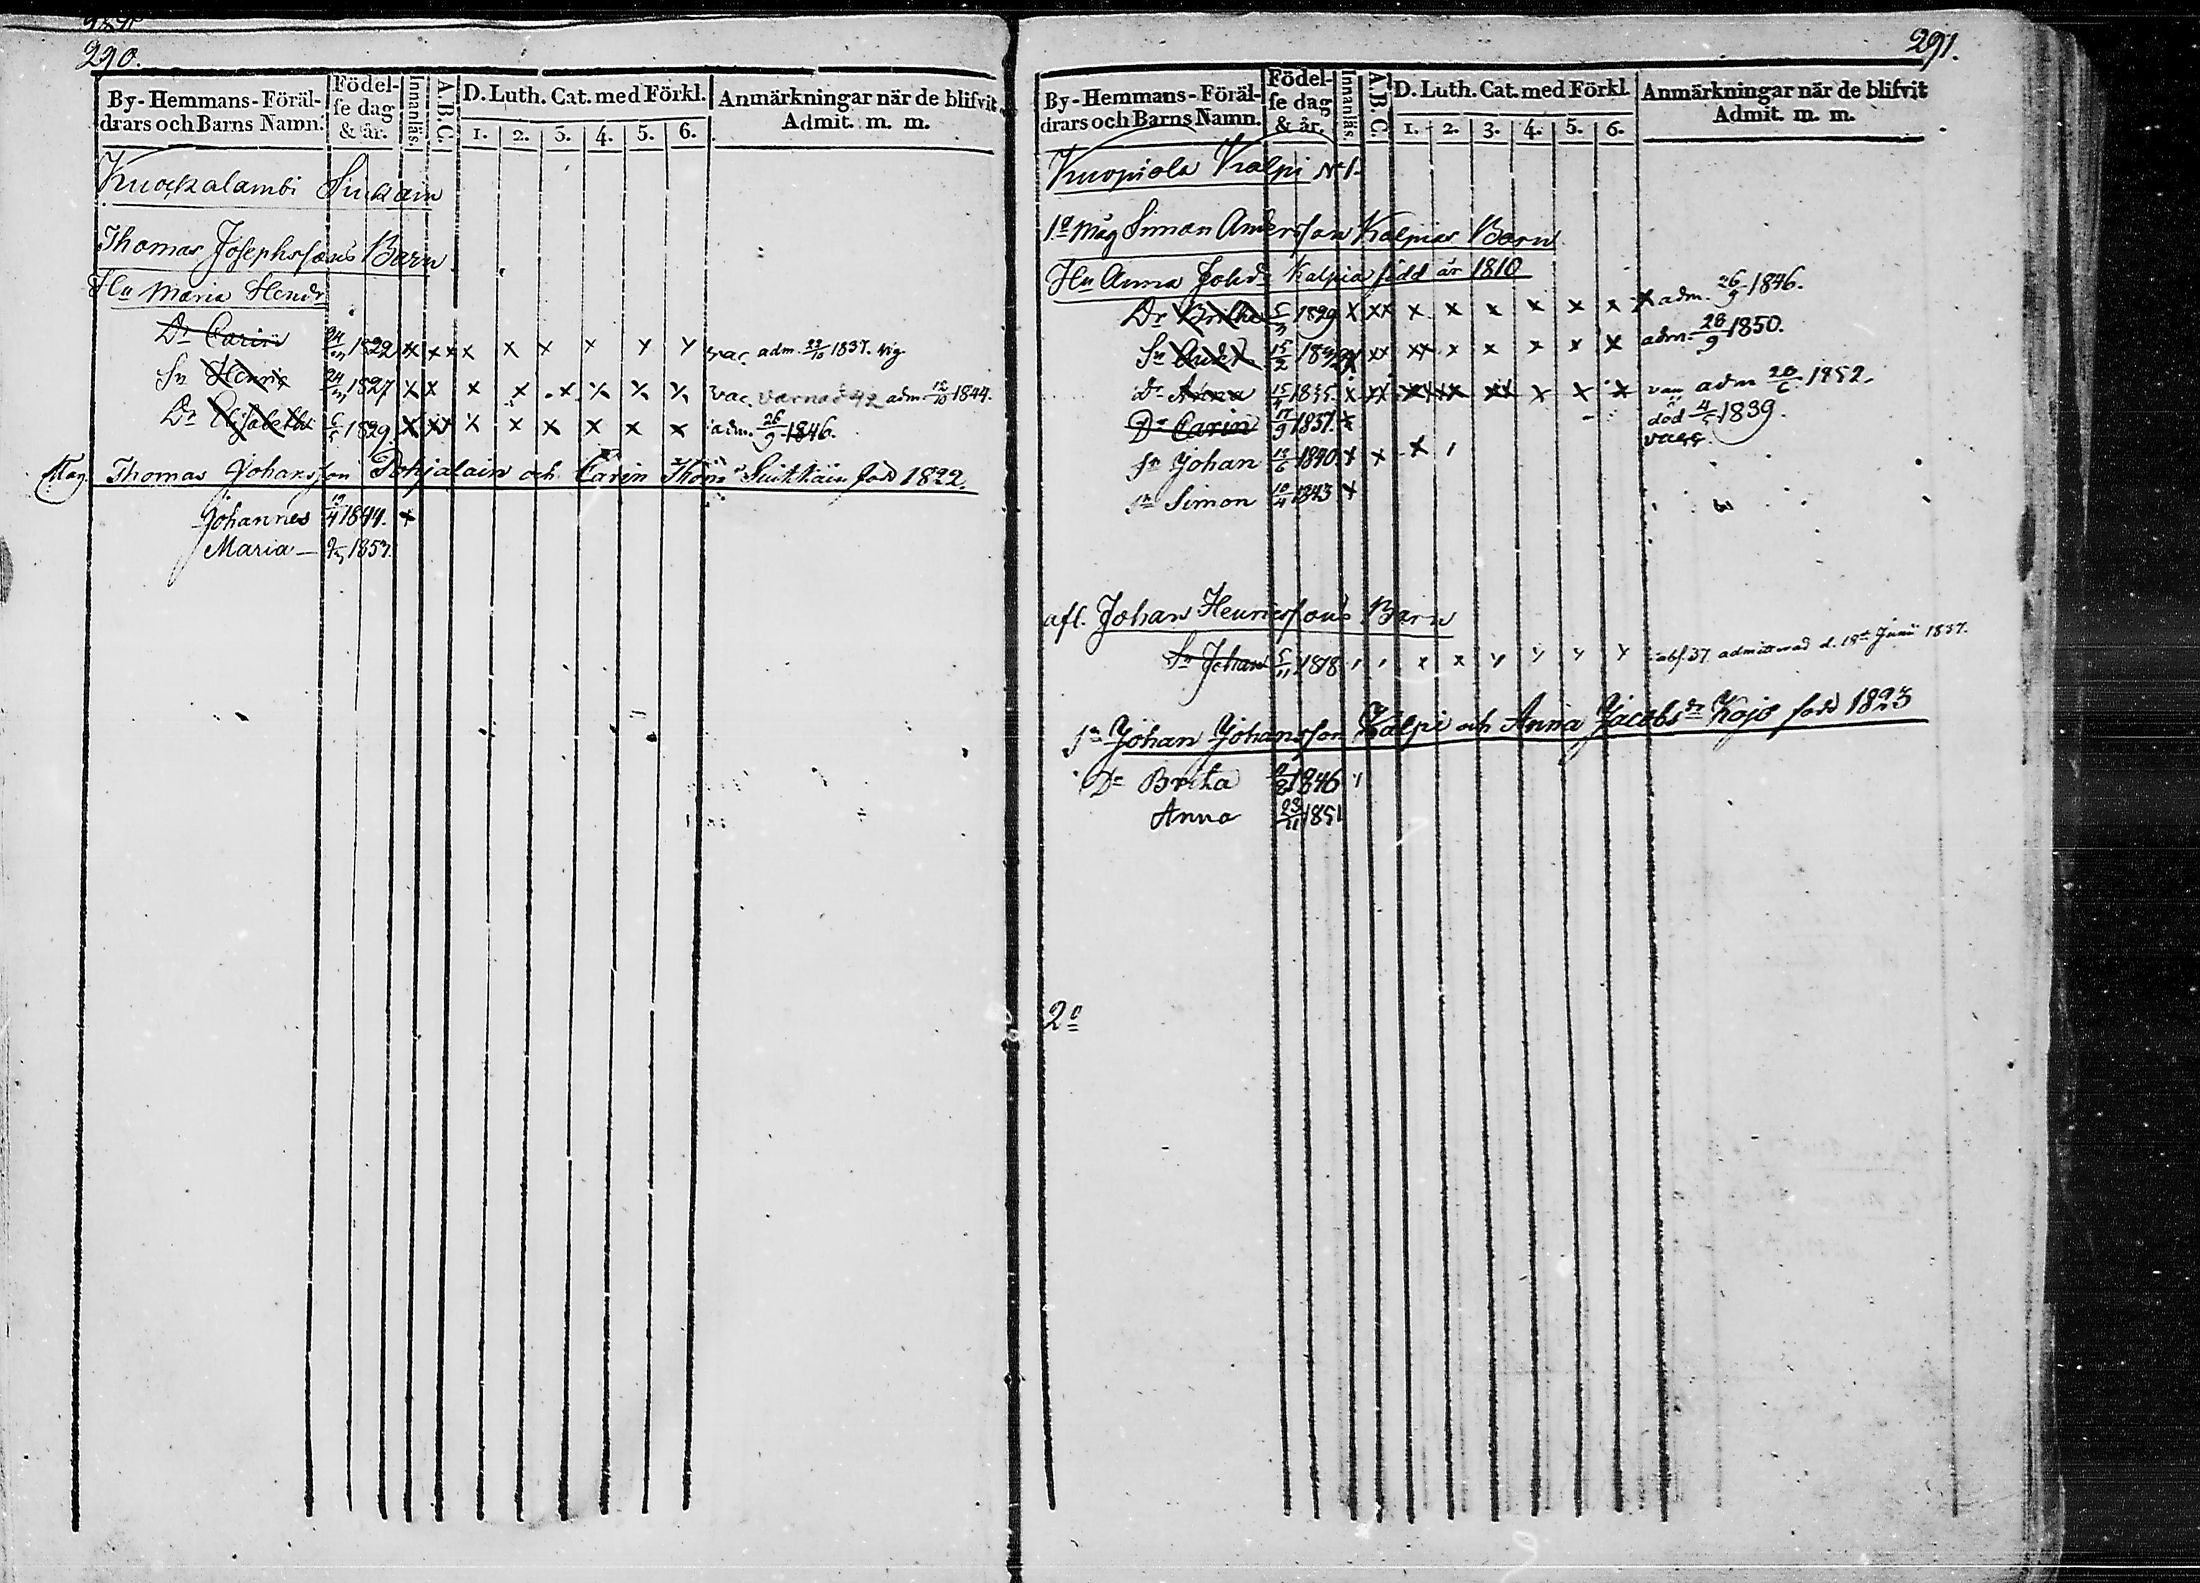 290.
By-Hemmans-Föräl-
drars och Barns Namn.
Födel-
se dag
& år.
Innanläs.
A.B.C.
D. Luth. Cat. med Förkl.
1. 2. 3. 4. 5. 6.
Anmärkningar när de blifvit
Admit. m. m.
Kuockalambi Suikain
Thomas Josephssons Barn
Hu Maria Hendr
Dr Carin 1822 x x x x x x x y y vac. adm. 22/10 1837. vig
Sn Henric 1827 x x x x x x x x vac. varnad 42 adm. 12/10 1844.
Dr Elisabeth 1829 x x x x x x x x x adm. 26/9 1846.
Mag Thomas Johansson Pohjalain och Carin Thoms Suikkain född 1822.
Johannes 19/4 1844. x
Maria 1853.
291.
By-Hemmans-Föräl-
drars och Barns Namn.
Födel-
se dag
& år.
Innanläs.
A.B.C.
D. Luth. Cat. med Förkl.
1. 2. 3. 4. 5. 6.
Anmärkningar när de blifvit
Admit. m. m.
Kuopiola Kalpi No 1.
1o Måg Simon Andersson Kalpias Barn
Hu Anna Johdr Kalpia född år 1810
Dr Britha 1829 x x x x x x x x x x adm. 26/9 1846.
Sn And. 15/2 x x x x x x x x adm. 28/9 1850.
Dr Anna 1835. x x x x x x x x x adm 20/6 1852.
Dr Carin 17/9 1837. x död 1839.
Sn Johan 1840 x x x vacc.
Sn Simon 10/4 1843 x
afl. Johan Henricssons Barn
Sn Johan 5/11 1818 x x y y y y abs. 37. admitterad d. 18de Junii 1837.
Sn Johan Johansson Kalpi och Anna Jacobsdr Kojo född 1823
Dr Britha 1846
Anna 23/11 1851
2o